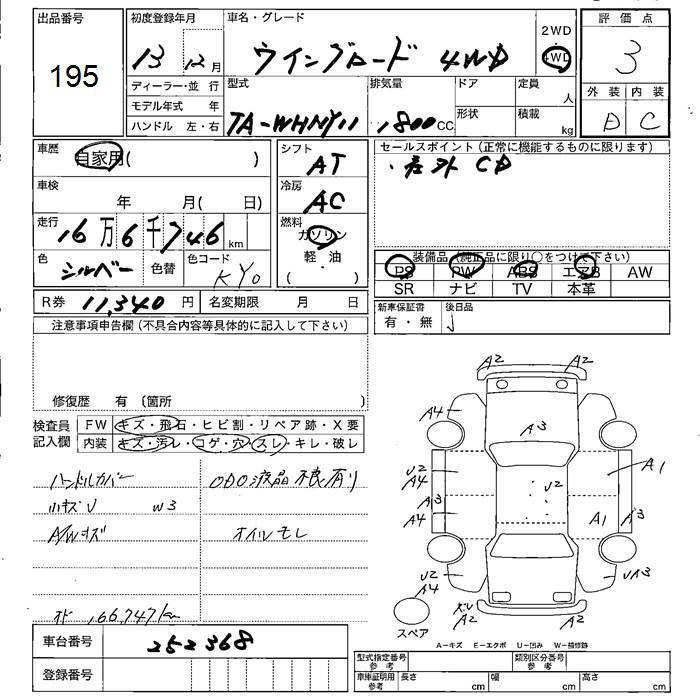 出品番号
195
初度登録年月
13 年 12 月
車名・グレード
ウイングロード 4WD
2WD
4WD
評価点
3
外装 内装
D C
ディーラー・並行
モデル年式 年
ハンドル 左・右
型式
TA-WHNY11
排気量
1800 CC
ドア
形状
定員
人
積載
kg
車歴
自家用( )
車検
年 月( 日)
走行
16万6千746 km
色
シルバー
色替
色コード
KY0
シフト
AT
冷房
AC
燃料
ガソリン
軽油
セールスポイント(正常に機能するものに限ります)
・社外CD
装備品(純正品に限り○をつけて下さい)
PS PW ABS エアB AW
SR ナビ TV 本革
R券 11,340 円
名変期限 月 日
新車保証書
有・無
後日品
注意事項申告欄(不具合内容等具体的に記入して下さい)
修復歴 有 (箇所 )
検査員
記入欄
FW キズ・飛石・ヒビ割・リペア跡・X要
内装 キズ・汚レ・コゲ・穴・スレ・キレ・破レ
ハンドルカバー
ODO液晶不良有り
小キズU W3
A/Wキズ
オイルモレ
オド 166,747km
A2 A2
A4
A3
U2
A4
U2
A1
A3
A4
A1
A3
U2
A4
UA3
A2
A2
スペア
A-キズ E-エクボ U-凹み W-補修跡
車台番号 252368
登録番号
型式指定番号
参考
類別区分番号
参考
車庫証明用
参考
長さ cm
幅 cm
高さ cm